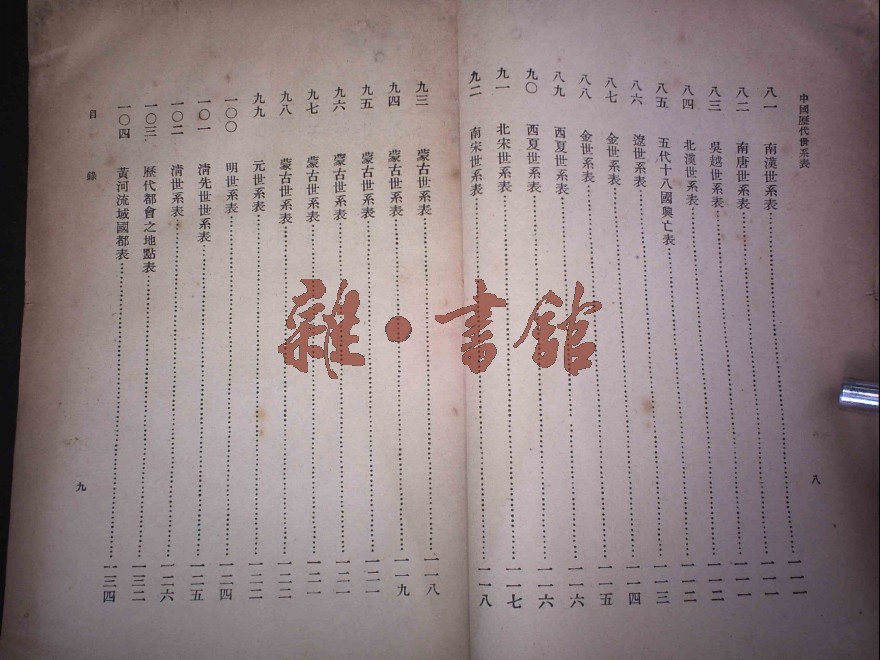 中國歷代世系表
八一 南漢世系表……一一一
八二 南唐世系表……一一一
八三 吳越世系表……一一一
八四 北漢世系表……一一二
八五 五代十八國興亡表……一一二
八六 遼世系表……一一三
八七 金世系表……一一四
八八 金世系表……一一五
八九 西夏世系表……一一六
九〇 西夏世系表……一一六
九一 北宋世系表……一一七
九二 南宋世系表……一一八
八
九三 蒙古世系表……一一八
九四 蒙古世系表……一一九
九五 蒙古世系表……一二一
九六 蒙古世系表……一二一
九七 蒙古世系表……一二一
九八 蒙古世系表……一二二
九九 元世系表……一二二
一〇〇 明世系表……一二四
一〇一 淸先世世系表……一二五
一〇二 淸世系表……一二六
一〇三 歷代都會之地點表……一三二
一〇四 黃河流域國都表……一三四
目錄
九
雜·書館